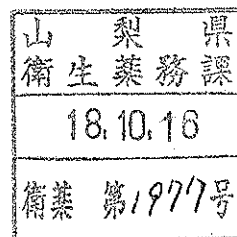 山梨県
衛生薬務課
18.10.16
衛薬 第1977号